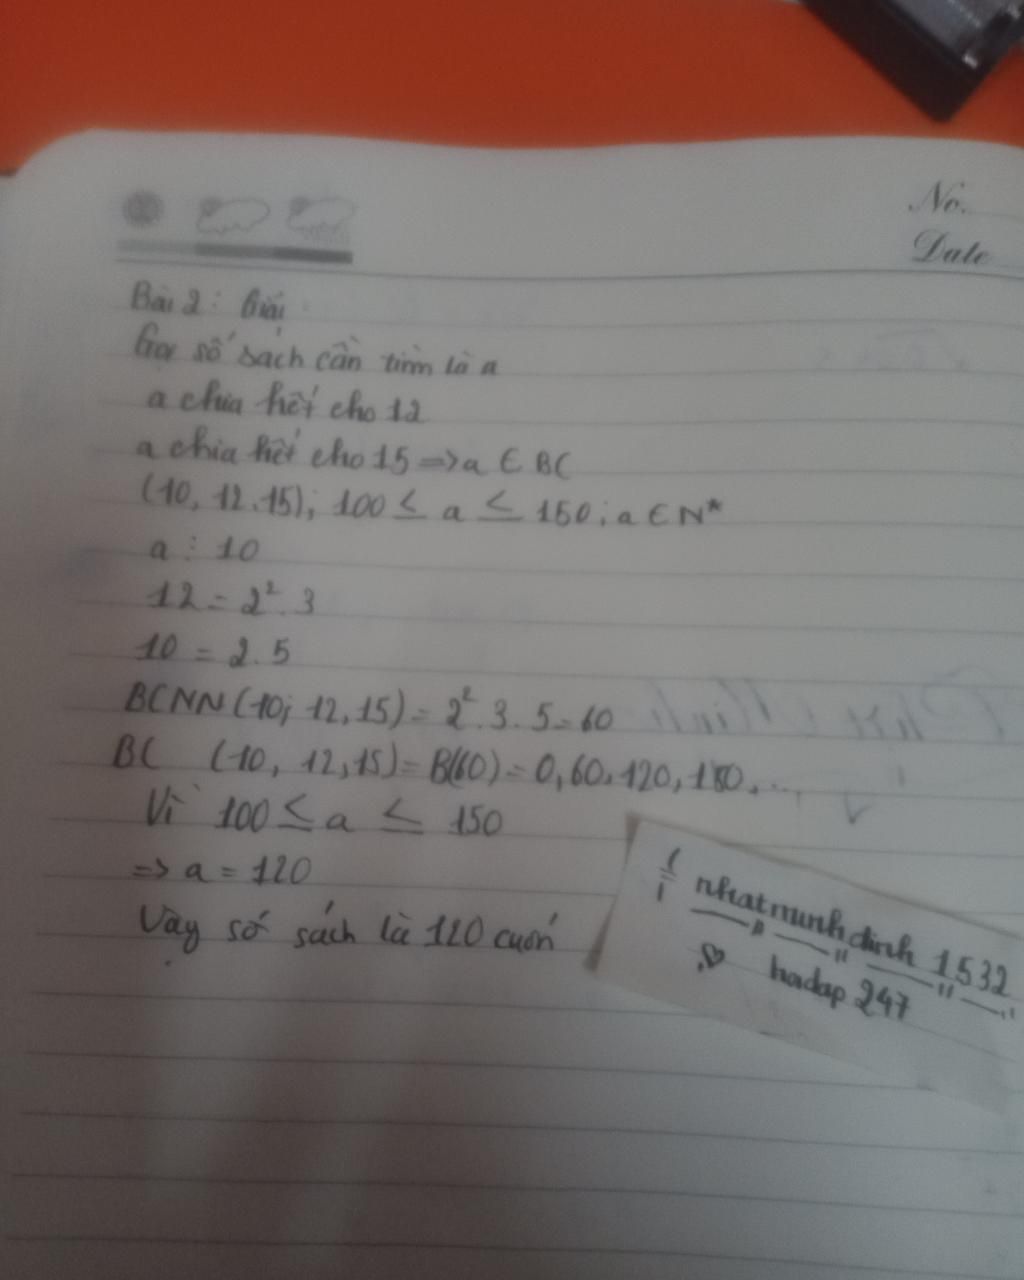 No.
Date
Bài 2: Giải
Gọi số sách cần tìm là a
a chia hết cho 12
a chia hết cho 15 => a ∈ BC
(10, 12, 15); 100 ≤ a ≤ 150; a ∈ N*
a ⋮ 10
12 = 2². 3
10 = 2. 5
BCNN (10; 12, 15) = 2². 3. 5 = 60
BC (10, 12, 15) = B(60) = 0, 60, 120, 180, ...
Vì 100 ≤ a ≤ 150
=> a = 120
Vậy số sách là 120 cuốn
nhatminhdinh 1532
hoidap 247